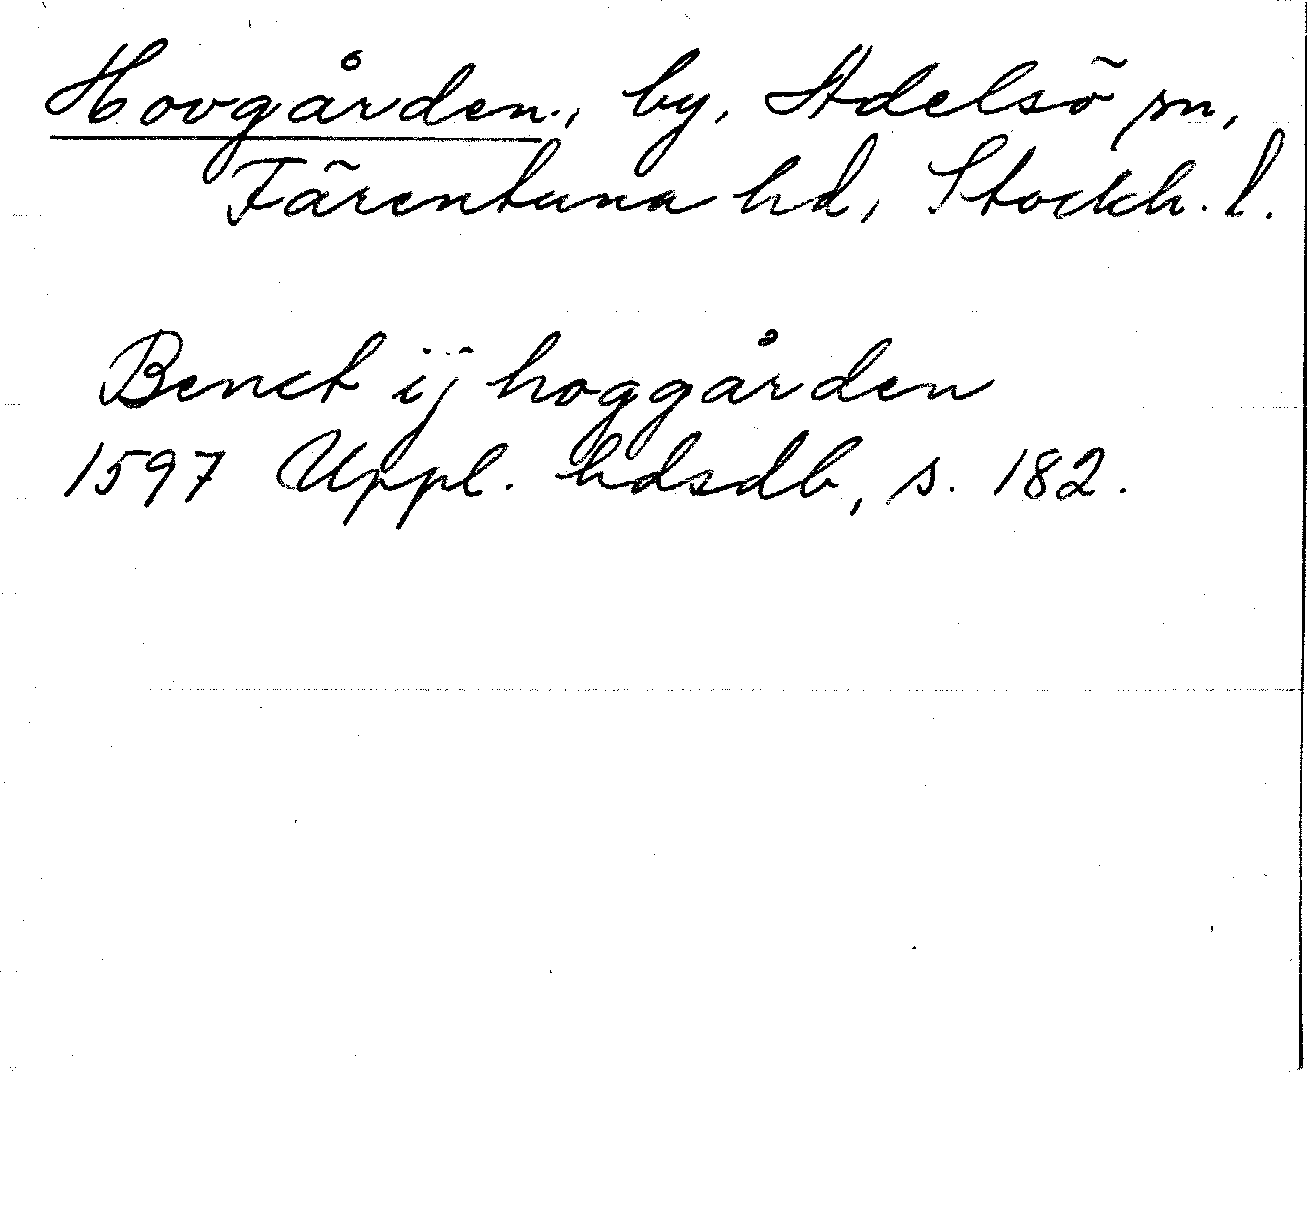 Hovgården., by, Adelsö sn,
Färentuna hd, Stockh. l.
Benct ij hoggården
1597 Uppl. hdsdb, s. 182.